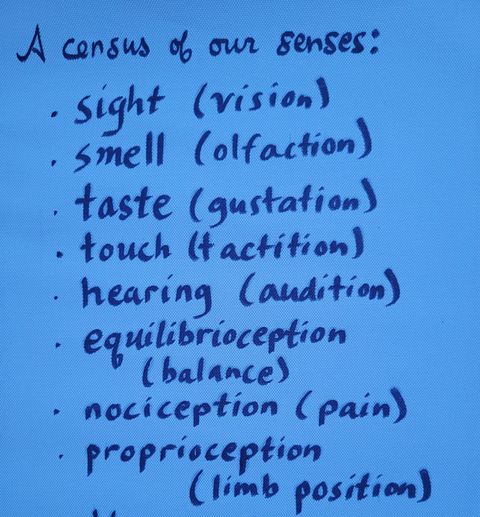 A census of our senses:
· sight (vision)
· smell (olfaction)
· taste (gustation)
· touch (tactition)
· hearing (audition)
· equilibrioception
(balance)
· nociception (pain)
· proprioception
(limb position)